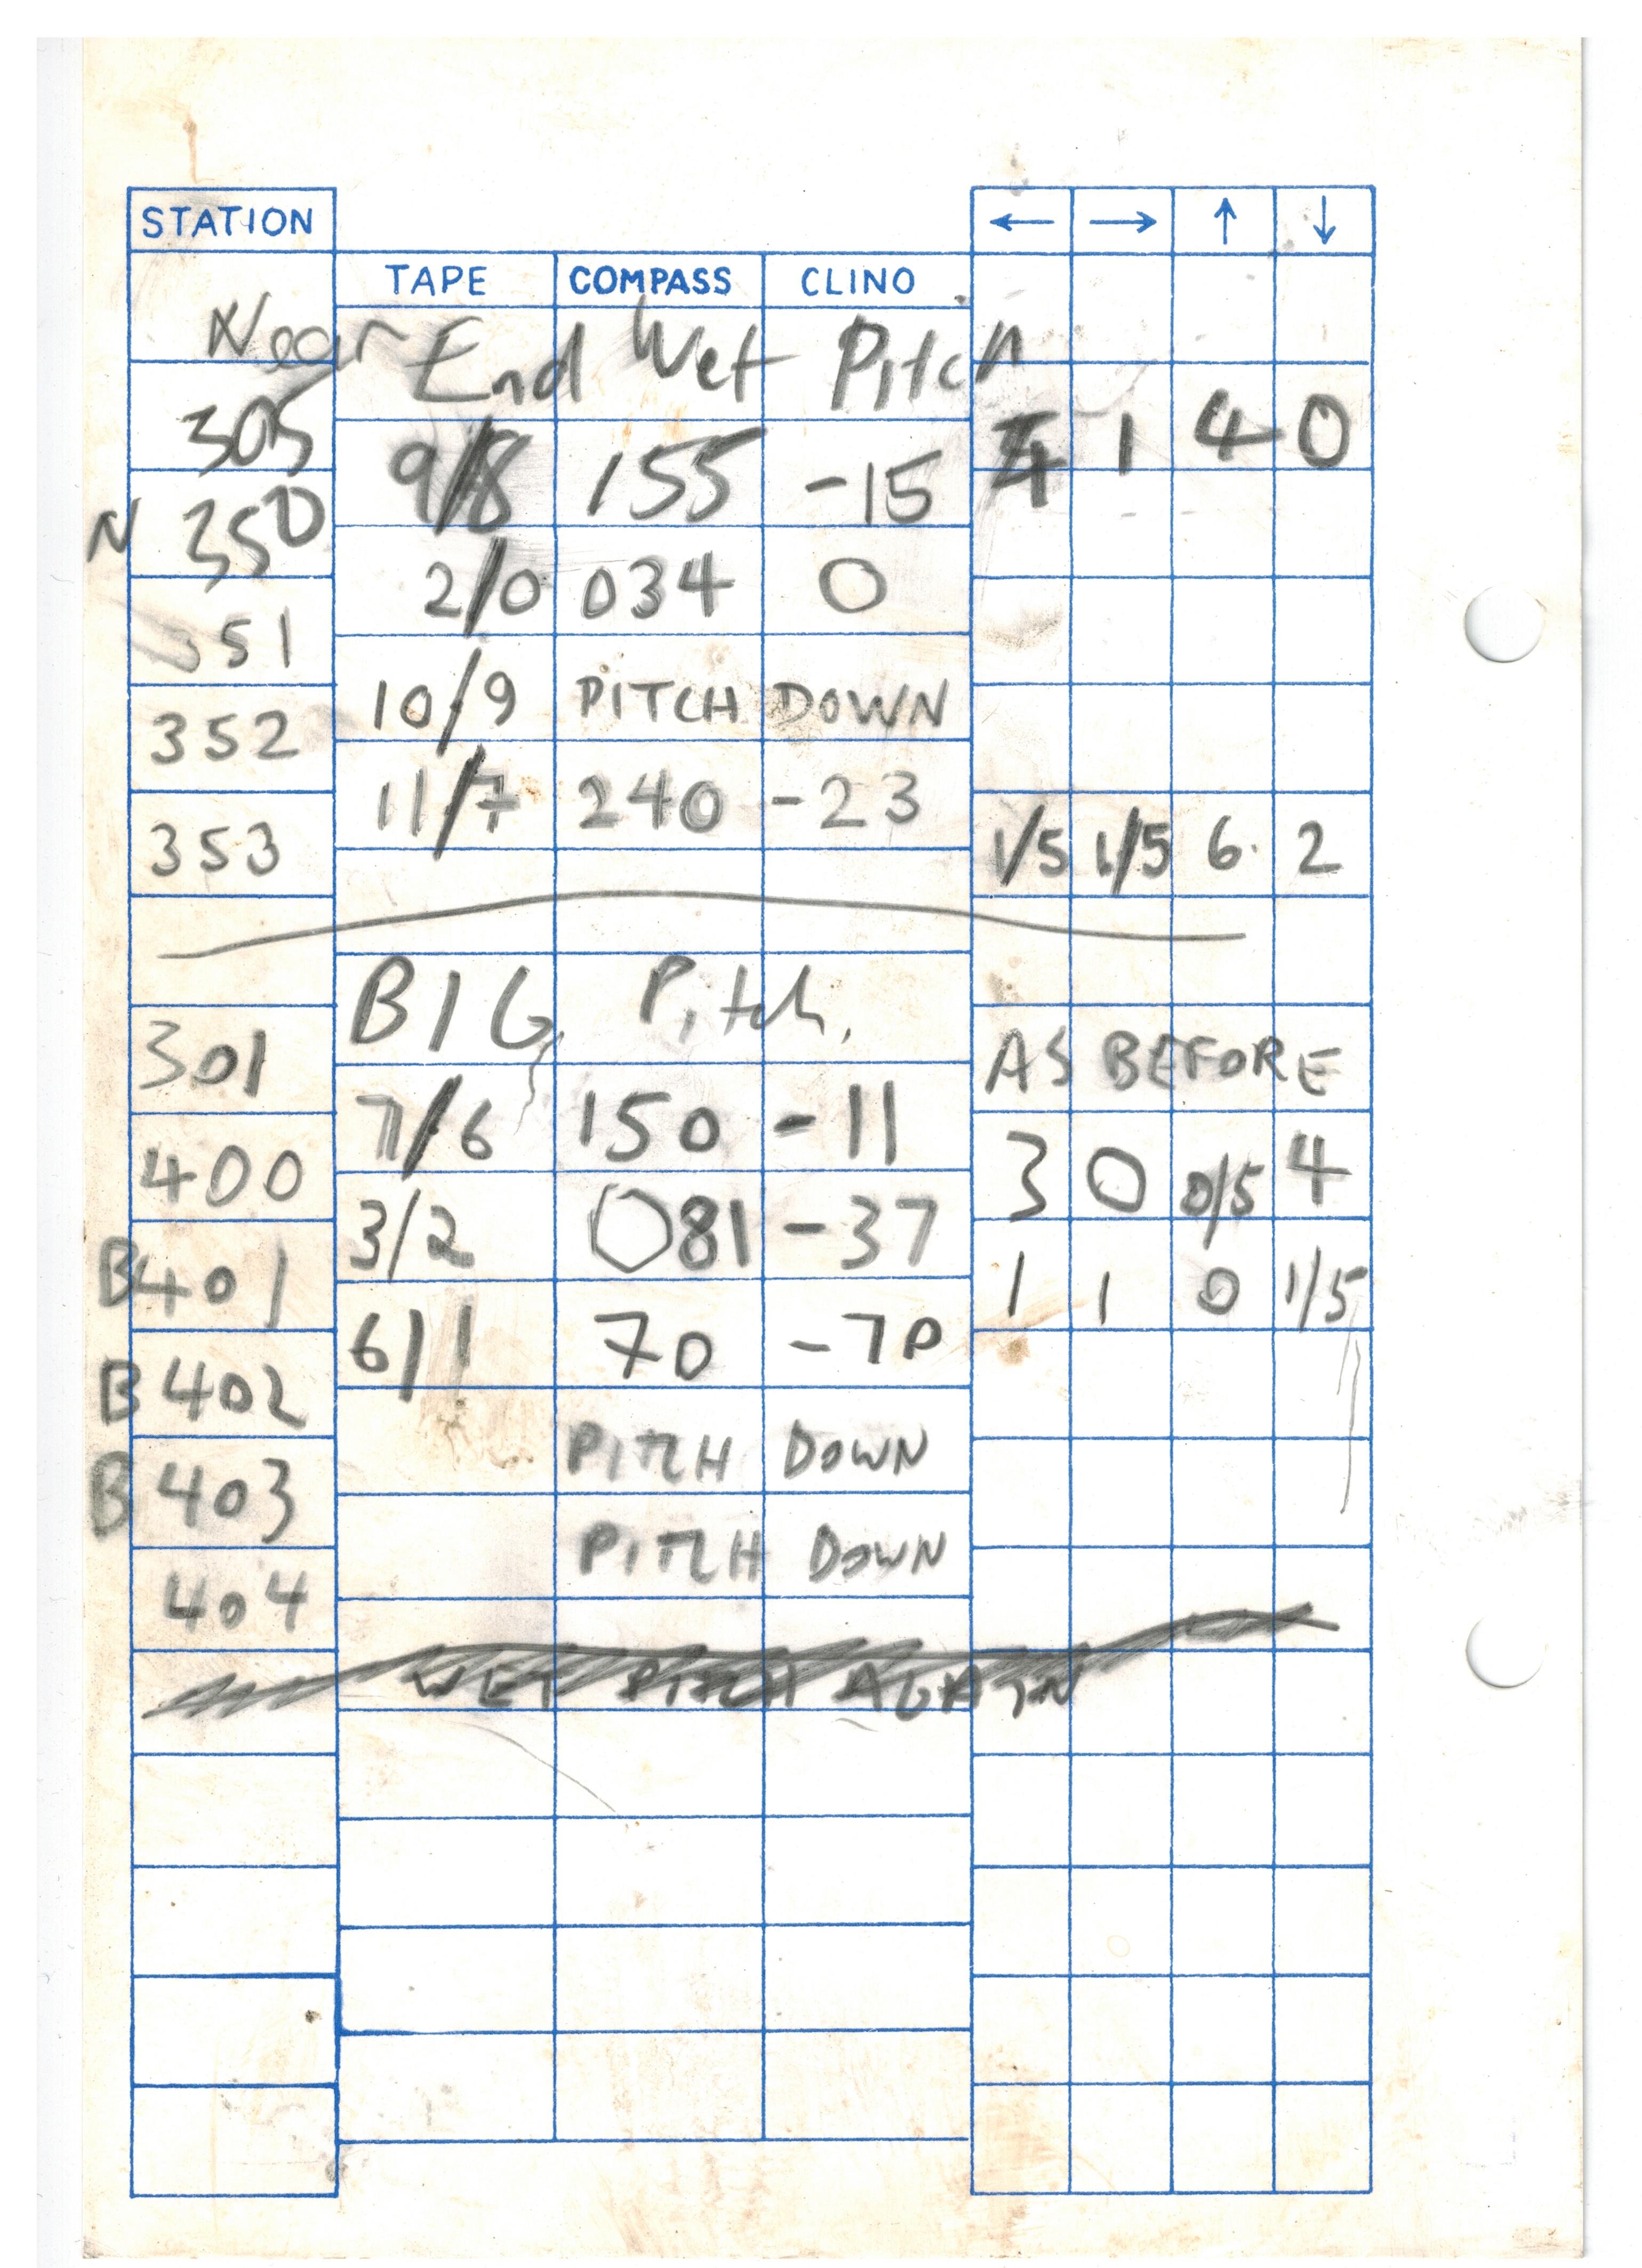 STATION ← → ↑ ↓
TAPE COMPASS CLINO
Near End Wet Pitch
305 1 4 0
9/8 155 -15
N 350
2/0 034 0
351
10/9 PITCH DOWN
352
11/7 240 -23
353 1/5 1/5 6 2
BIG Pitch.
301 AS BEFORE
7/6 150 -11
400 3 0 0/5 4
3/2 081 -37
B401 1 1 0 1/5
6/1 70 -70
B 402
PITCH DOWN
B 403
PITCH DOWN
404
WET PITCH AGAIN